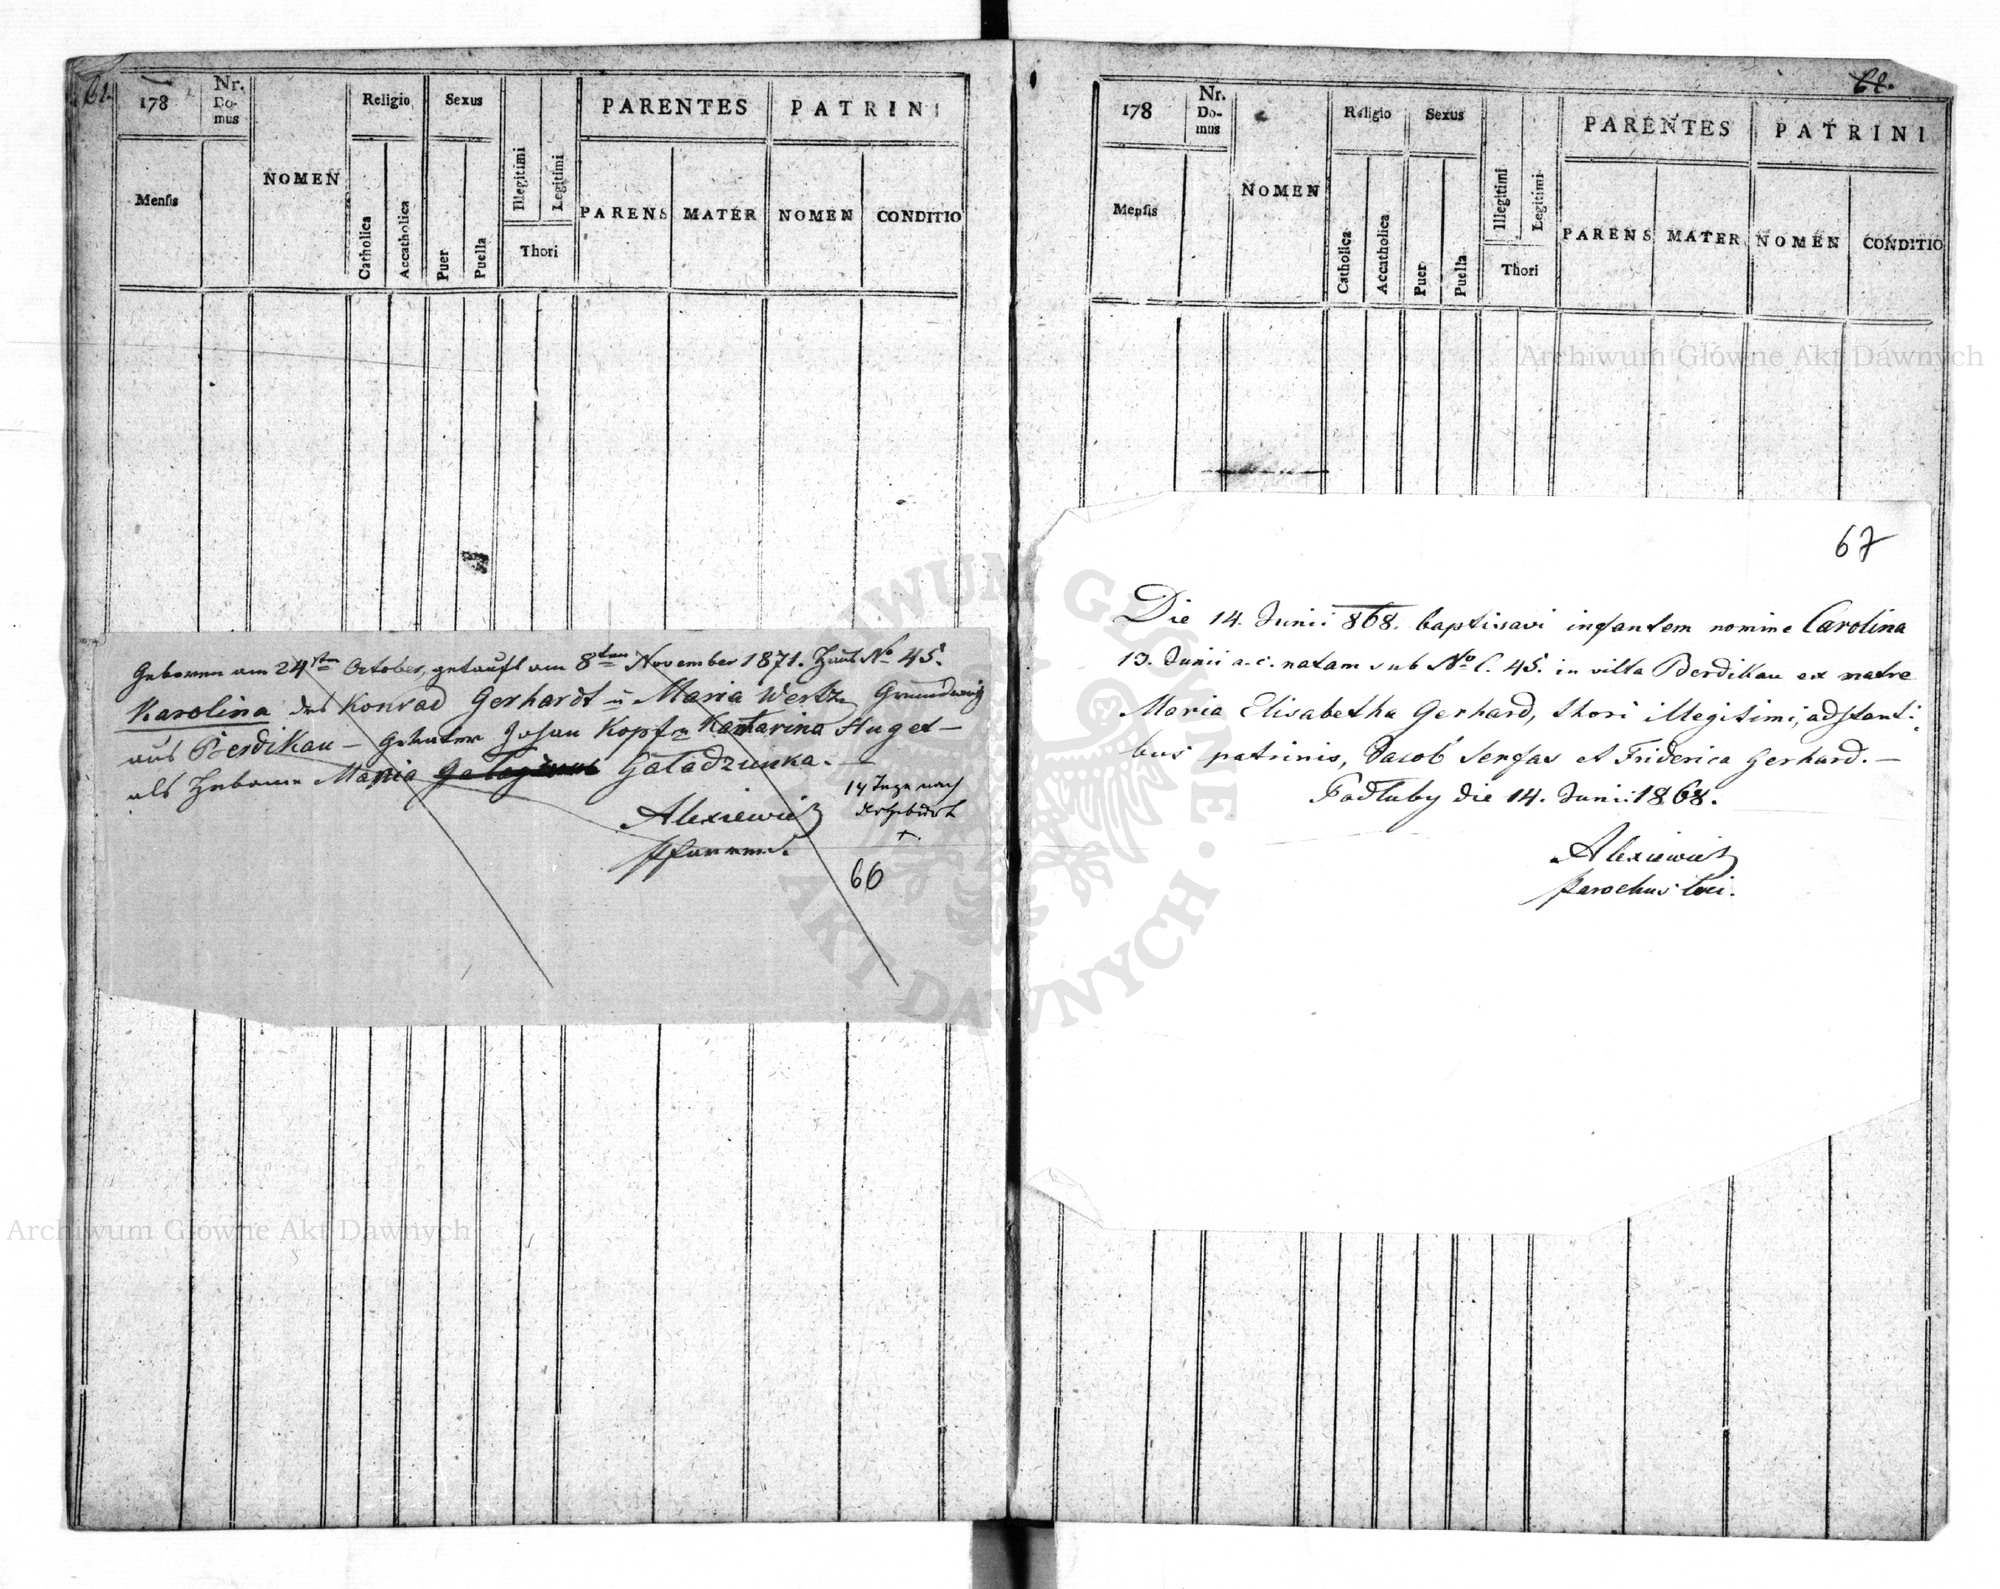 61.
178
Nr.
Do-
mus
NOMEN
Religio
Sexus
PARENTES
PATRINI
Mensis
Catholica
Accatholica
Puer
Puella
Illegitimi
Legitimi
Thori
PARENS
MATER
NOMEN
CONDITIO
Geboren am 24ten October, getauft am 8ten November 1871. Haus No 45.
Karolina des Konrad Gerhardt u Maria Wertz
aus Berdikau — Johan Kopf u Katarina Huget —
als Hebame Maria Gaładziunka. —
14 Tage nach
der Geburt
+.
Alexiewicz
Pfarrer.
66
62.
178
Nr.
Do-
mus
NOMEN
Religio
Sexus
PARENTES
PATRINI
Mensis
Catholica
Accatholica
Puer
Puella
Illegitimi
Legitimi
Thori
PARENS
MATER
NOMEN
CONDITIO
67
Die 14. Junii 868. baptisavi infantem nomine Carolina
13. Junii a. c. natam sub No C. 45. in villa Berdikau ex matre
Maria Elisabetha Gerhard, thori illegitimi, adstanti-
bus patrinis, Jacob et Friderica Gerhard. —
Podłuby die 14. Junii 1868.
Alexiewicz
parochus loci.
Archiwum Główne Akt Dawnych
Archiwum Główne Akt Dawnych
ARCHIWUM GŁÓWNE AKT DAWNYCH